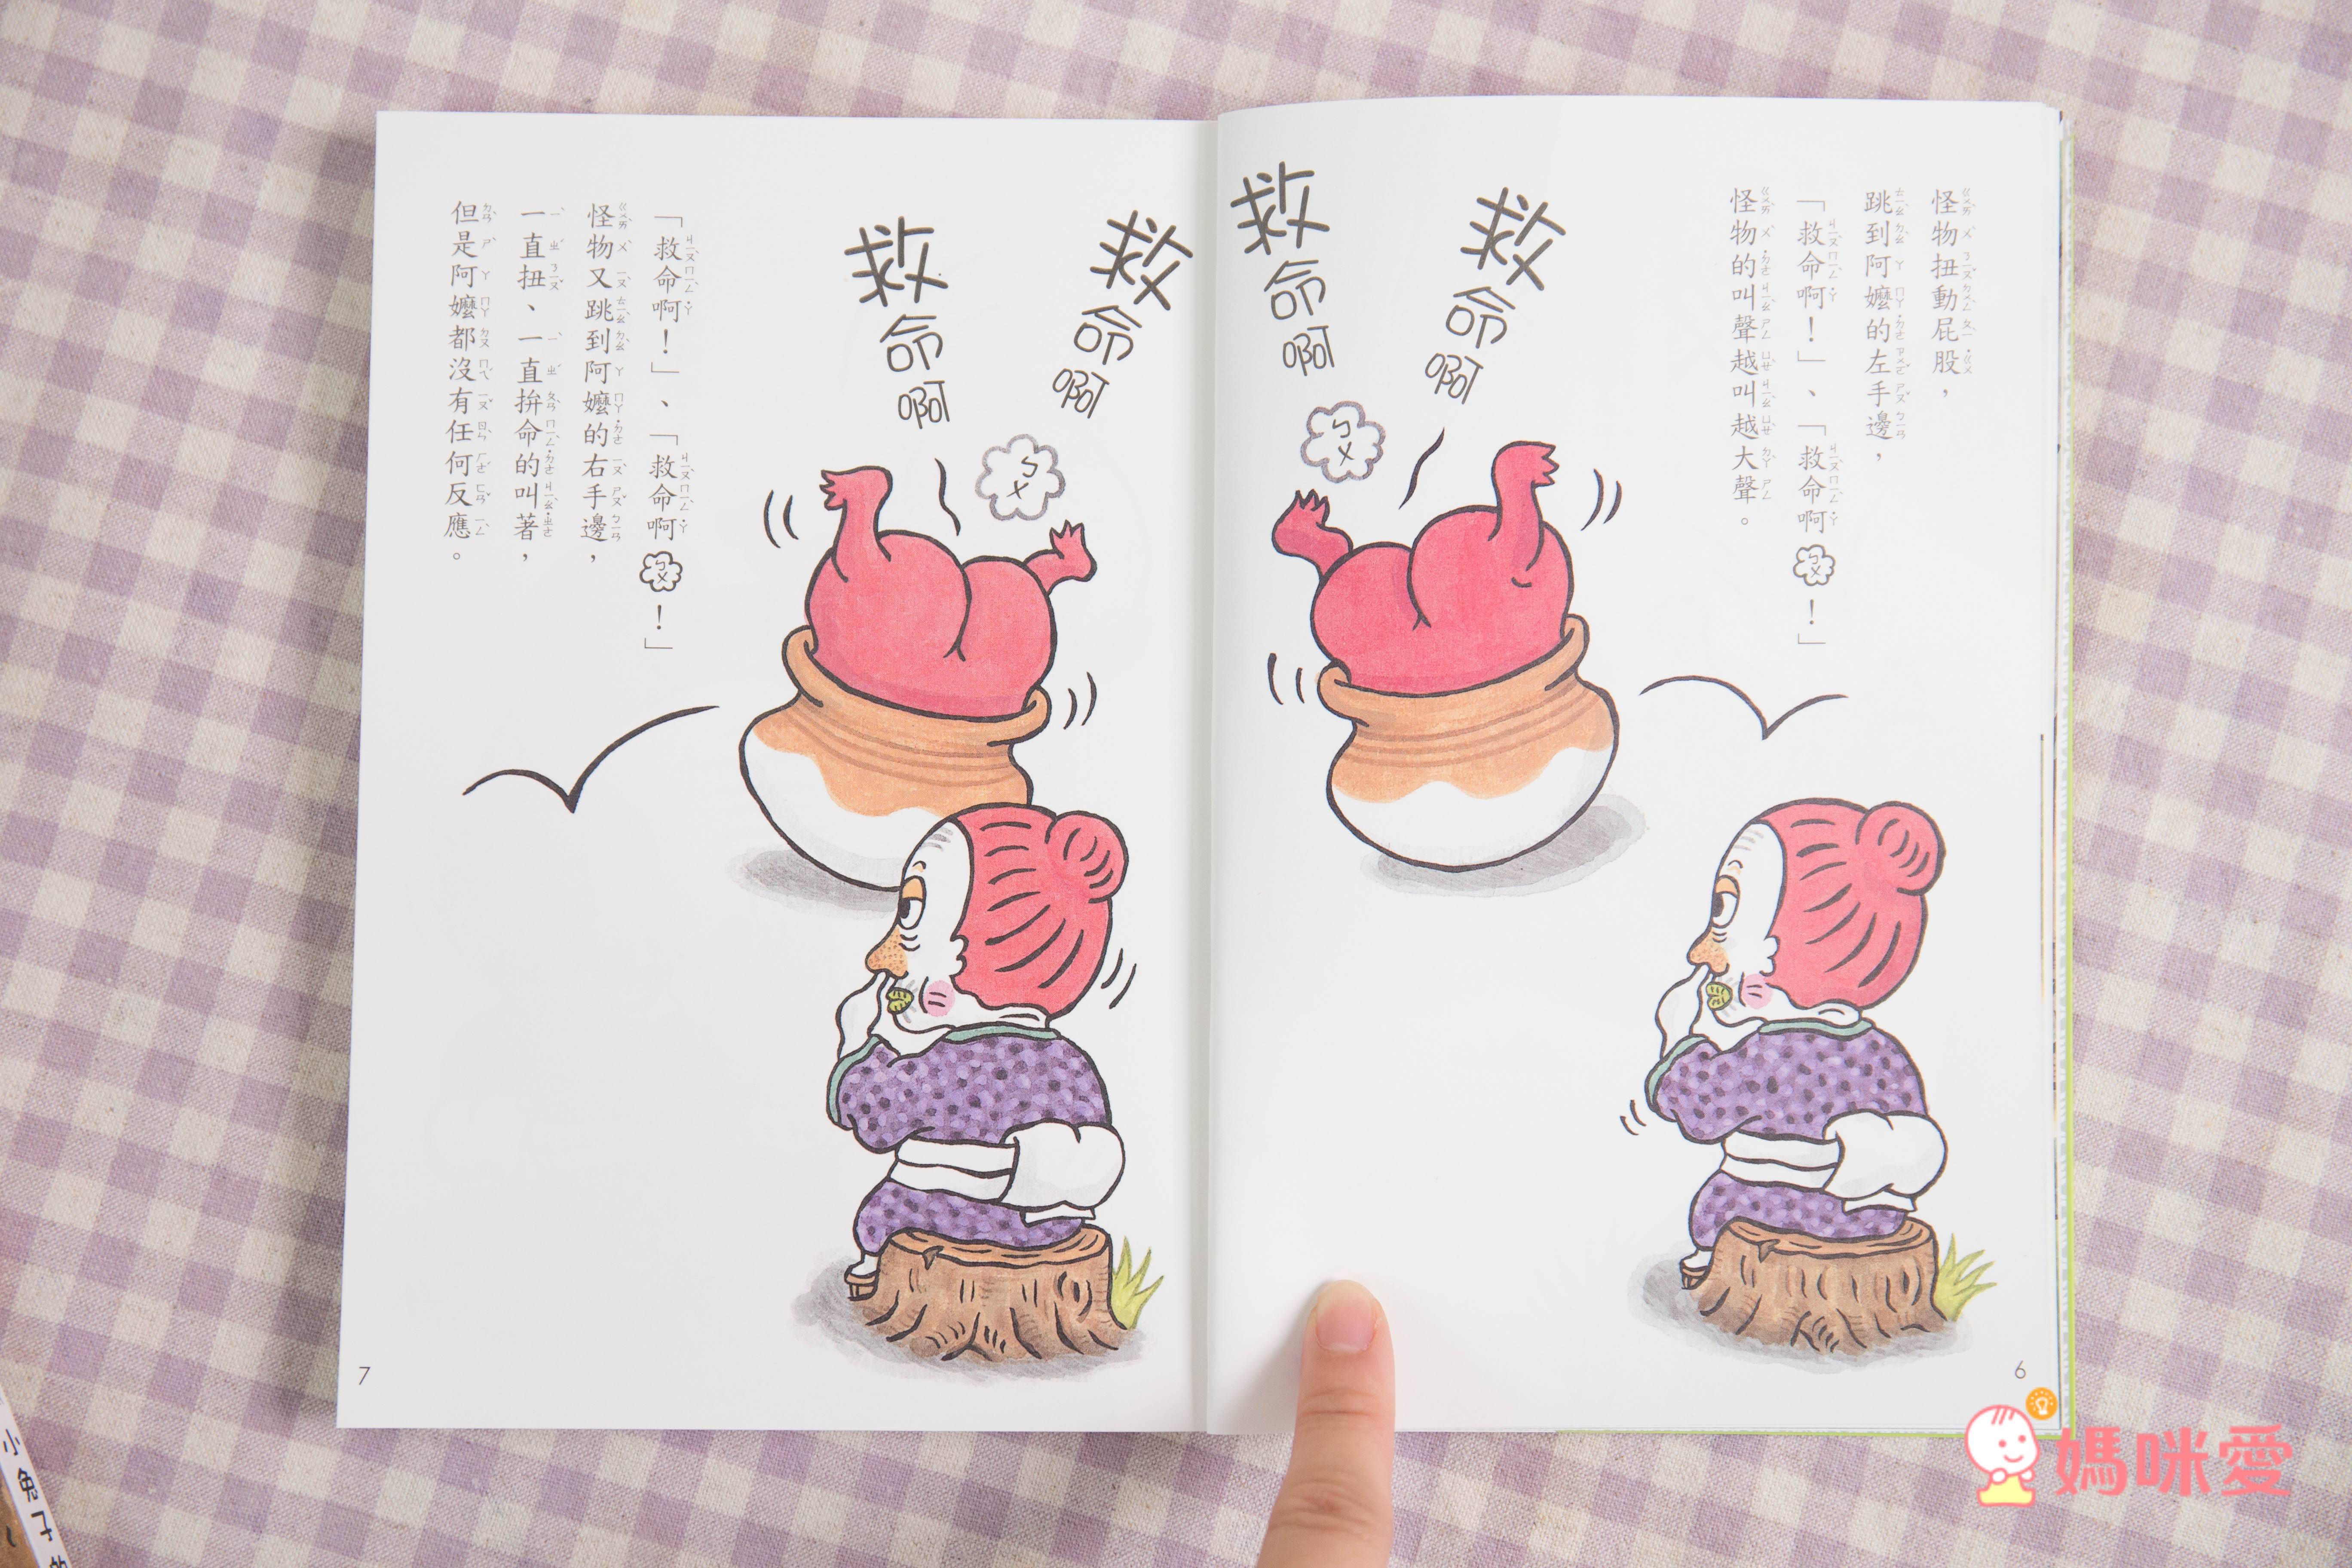 怪物扭動屁股，
跳到阿嬤的左手邊，
「救命啊！」、「救命啊ㄅㄨ！」
怪物的叫聲越叫越大聲。
救命啊
救命啊
ㄅㄨ
6
救命啊
救命啊
ㄅㄨ
「救命啊！」、「救命啊ㄅㄨ！」
怪物又跳到阿嬤的右手邊，
一直扭、一直拚命的叫著，
但是阿嬤都沒有任何反應。
7
小兔子的
媽咪愛